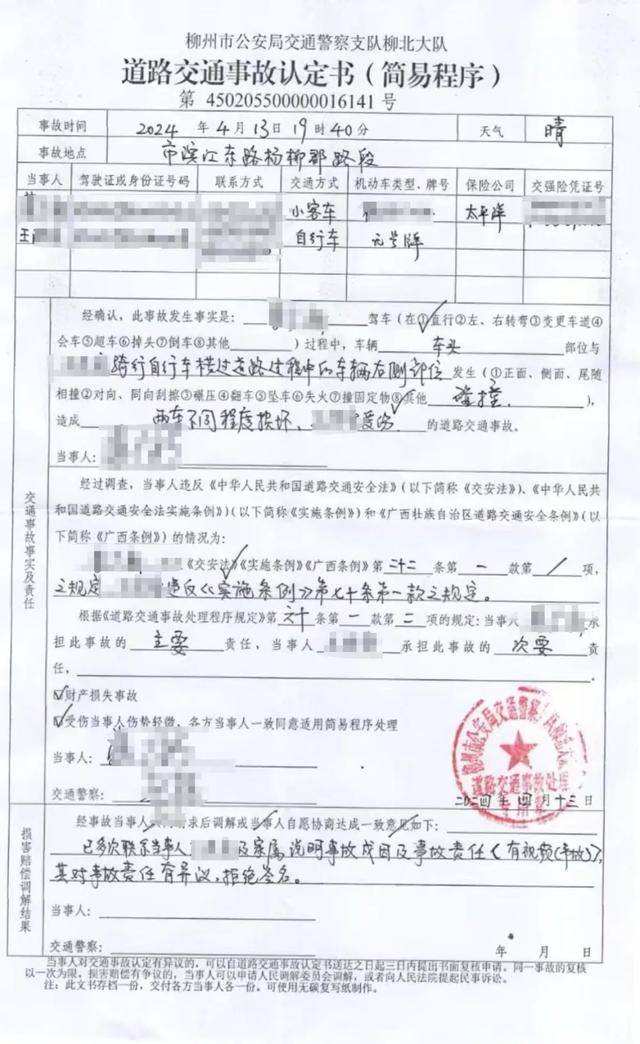 柳州市公安局交通警察支队柳北大队
道路交通事故认定书（简易程序）
第 450205500000016141 号
事故时间 2024 年 4 月 13 日 19 时 40 分 天气 晴
事故地点 市滨江东路杨柳郡路段
当事人 驾驶证或身份证号码 联系方式 交通方式 机动车类型、牌号 保险公司 交强险凭证号
小客车 太平洋
王 自行车 无号牌
经确认，此事故发生事实是： 驾车（在①直行②左、右转弯③变更车道④
会车⑤超车⑥掉头⑦倒车⑧其他 ）过程中，车辆 车头 部位与
骑行自行车横过道路过程中的车辆左侧部位 发生（①正面、侧面、尾随
相撞②对向、同向刮擦③碾压④翻车⑤坠车⑥失火⑦撞固定物⑧其他 碰撞 ），
造成 两车不同程度损坏、 受伤 的道路交通事故。
当事人：
交通事故事实及责任
经过调查，当事人违反《中华人民共和国道路交通安全法》（以下简称《交安法》）、《中华人民共
和国道路交通安全法实施条例》）（以下简称《实施条例》）和《广西壮族自治区道路交通安全条例》（以
下简称《广西条例》）的情况为：
《交安法》《实施条例》《广西条例》第 二十二 条第 一 款第 / 项，
之规定 违反《实施条例》第七十条第一款之规定。
根据《道路交通事故处理程序规定》第 六十 条第 一 款第 二 项的规定：当事人 承
担此事故的 主要 责任，当事人 承担此事故的 次要 责
任，
☑财产损失事故
☑受伤当事人伤势轻微，各方当事人一致同意适用简易程序处理
当事人：
交通警察： 二〇二四年 四 月 十三 日
柳州市公安局交通警察支队柳北大队
道路交通事故处理
专用章
损害赔偿调解结果
经事故当事人 请求后调解或当事人自愿协商达成一致意见如下：
已多次联系当事人 及家属，说明事故成因及事故责任（有视频（事故）），
其对事故责任有异议，拒绝签名。
当事人：
交通警察： 年 月 日
当事人对交通事故认定有异议的，可以自道路交通事故认定书送达之日起三日内提出书面复核申请。同一事故的复核
以一次为限。损害赔偿有争议的，当事人可以申请人民调解委员会调解，或者向人民法院提起民事诉讼。
注：此文书存档一份，交付各方当事人各一份。可使用无碳复写纸制作。